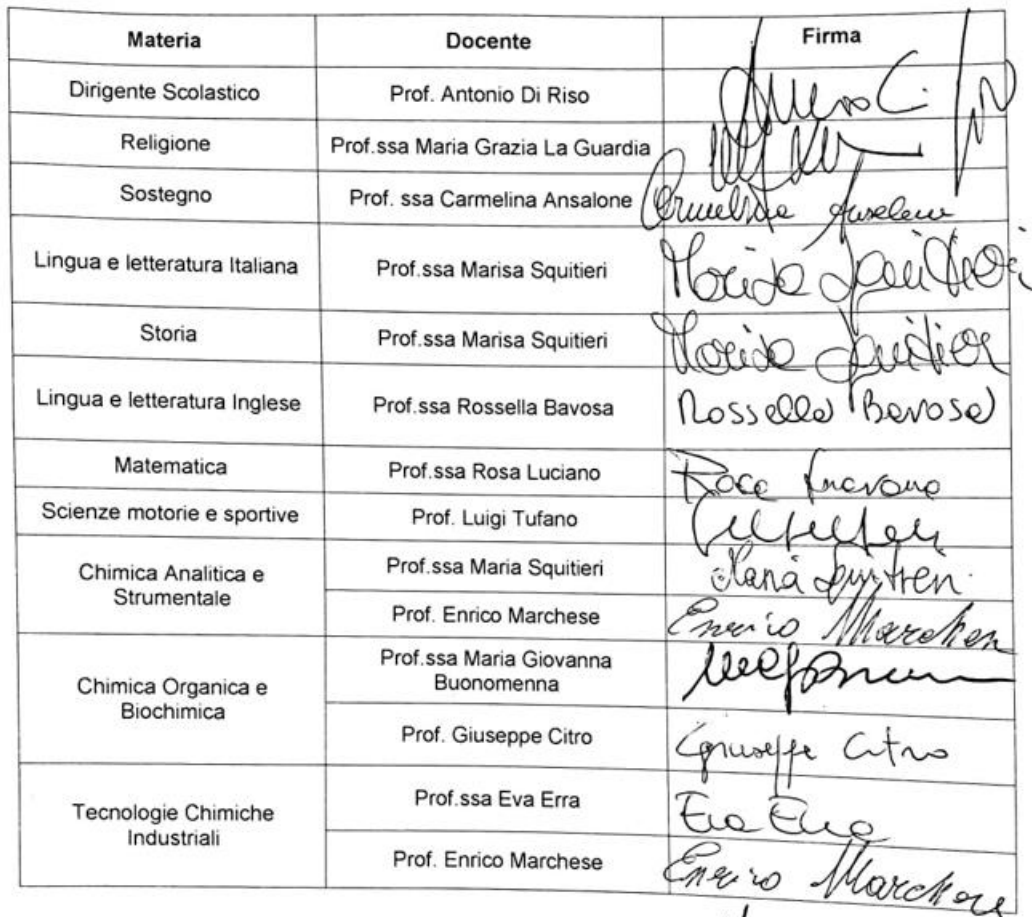 Materia Docente Firma
Dirigente Scolastico Prof. Antonio Di Riso
Religione Prof.ssa Maria Grazia La Guardia
Sostegno Prof. ssa Carmelina Ansalone
Lingua e letteratura Italiana Prof.ssa Marisa Squitieri Marisa Squitieri
Storia Prof.ssa Marisa Squitieri Marisa Squitieri
Lingua e letteratura Inglese Prof.ssa Rossella Bavosa Rossella Bavosa
Matematica Prof.ssa Rosa Luciano Rosa
Scienze motorie e sportive Prof. Luigi Tufano
Chimica Analitica e
Strumentale
Prof.ssa Maria Squitieri Maria Squitieri
Prof. Enrico Marchese Enrico Marchese
Chimica Organica e
Biochimica
Prof.ssa Maria Giovanna
Buonomenna
Prof. Giuseppe Citro Giuseppe Citro
Tecnologie Chimiche
Industriali
Prof.ssa Eva Erra Eva Erra
Prof. Enrico Marchese Enrico Marchese